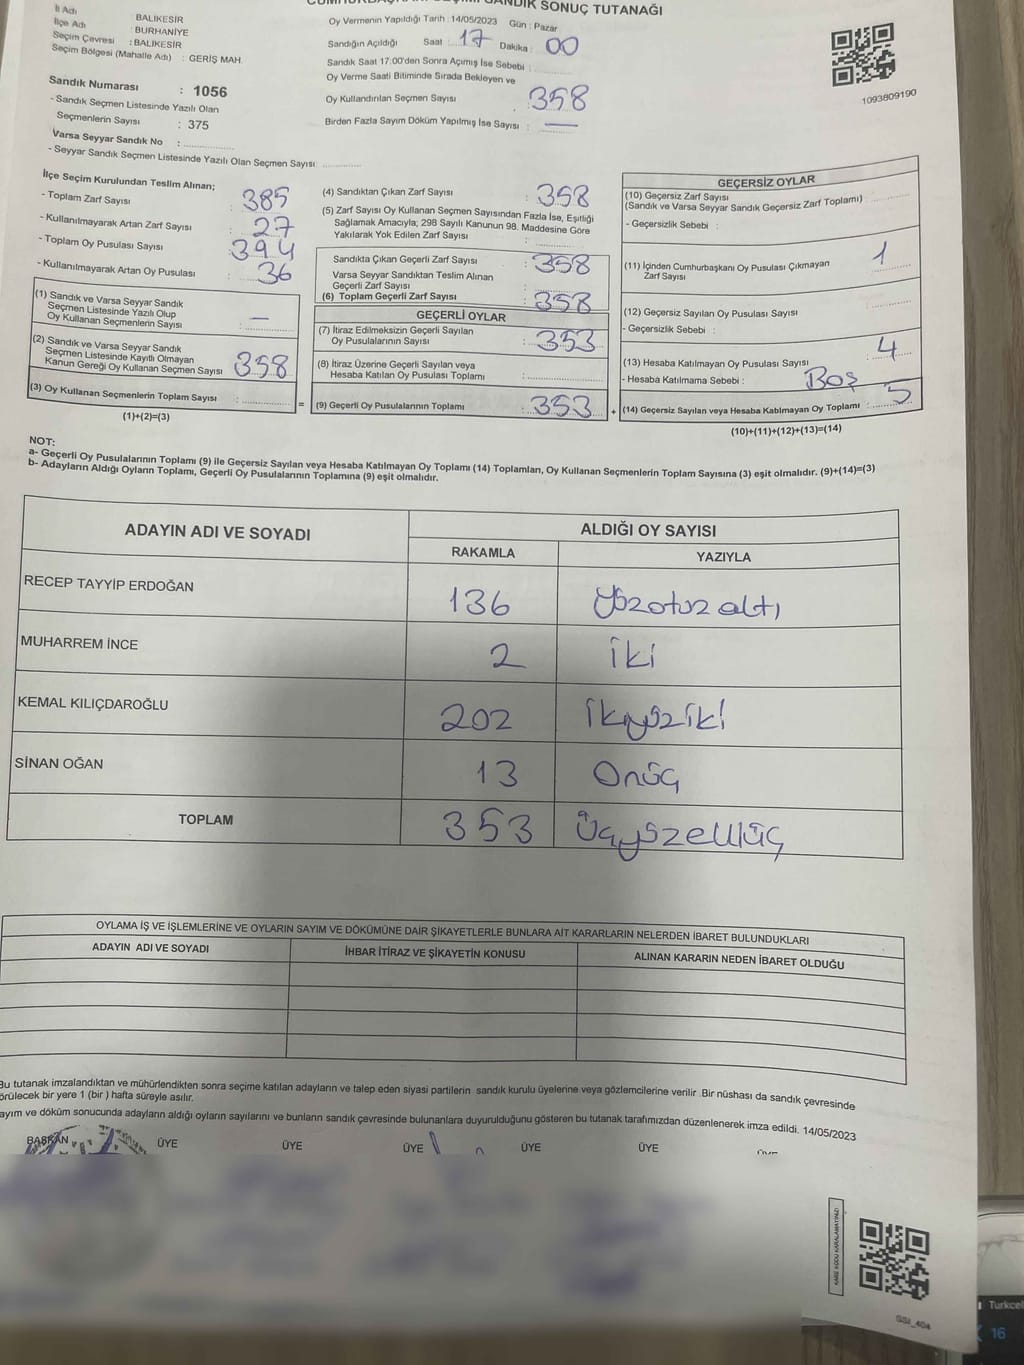 SANDIK SONUÇ TUTANAĞI
İl Adı BALIKESİR
İlçe Adı : BURHANİYE
Seçim Çevresi : BALIKESİR
Seçim Bölgesi (Mahalle Adı) : GERİŞ MAH.
Sandık Numarası : 1056
- Sandık Seçmen Listesinde Yazılı Olan
Seçmenlerin Sayısı : 375
Varsa Seyyar Sandık No :
- Seyyar Sandık Seçmen Listesinde Yazılı Olan Seçmen Sayısı:
Oy Vermenin Yapıldığı Tarih : 14/05/2023 Gün : Pazar
Sandığın Açıldığı Saat : 17 Dakika : 00
Sandık Saat 17:00'den Sonra Açımış İse Sebebi :
Oy Verme Saati Bitiminde Sırada Bekleyen ve
Oy Kullandırılan Seçmen Sayısı : 358
Birden Fazla Sayım Döküm Yapılmış İse Sayısı : —
1093809190
İlçe Seçim Kurulundan Teslim Alınan;
- Toplam Zarf Sayısı : 385
- Kullanılmayarak Artan Zarf Sayısı : 27
- Toplam Oy Pusulası Sayısı : 394
- Kullanılmayarak Artan Oy Pusulası : 36
(1) Sandık ve Varsa Seyyar Sandık
Seçmen Listesinde Yazılı Olup
Oy Kullanan Seçmenlerin Sayısı : —
(2) Sandık ve Varsa Seyyar Sandık
Seçmen Listesinde Kayıtlı Olmayan
Kanun Gereği Oy Kullanan Seçmen Sayısı 358
(3) Oy Kullanan Seçmenlerin Toplam Sayısı :
(1)+(2)=(3)
(4) Sandıktan Çıkan Zarf Sayısı : 358
(5) Zarf Sayısı Oy Kullanan Seçmen Sayısından Fazla İse, Eşitliği
Sağlamak Amacıyla; 298 Sayılı Kanunun 98. Maddesine Göre
Yakılarak Yok Edilen Zarf Sayısı :
Sandıkta Çıkan Geçerli Zarf Sayısı : 358
Varsa Seyyar Sandıktan Teslim Alınan
Geçerli Zarf Sayısı :
(6) Toplam Geçerli Zarf Sayısı : 358
GEÇERLİ OYLAR
(7) İtiraz Edilmeksizin Geçerli Sayılan
Oy Pusulalarının Sayısı : 353
(8) İtiraz Üzerine Geçerli Sayılan veya
Hesaba Katılan Oy Pusulası Toplamı :
= (9) Geçerli Oy Pusulalarının Toplamı : 353 +
GEÇERSİZ OYLAR
(10) Geçersiz Zarf Sayısı
(Sandık ve Varsa Seyyar Sandık Geçersiz Zarf Toplamı)
- Geçersizlik Sebebi :
(11) İçinden Cumhurbaşkanı Oy Pusulası Çıkmayan
Zarf Sayısı 1
(12) Geçersiz Sayılan Oy Pusulası Sayısı
- Geçersizlik Sebebi :
(13) Hesaba Katılmayan Oy Pusulası Sayısı : 4
- Hesaba Katılmama Sebebi : Boş
(14) Geçersiz Sayılan veya Hesaba Katılmayan Oy Toplamı : 5
(10)+(11)+(12)+(13)=(14)
NOT:
a- Geçerli Oy Pusulalarının Toplamı (9) ile Geçersiz Sayılan veya Hesaba Katılmayan Oy Toplamı (14) Toplamları, Oy Kullanan Seçmenlerin Toplam Sayısına (3) eşit olmalıdır. (9)+(14)=(3)
b- Adayların Aldığı Oyların Toplamı, Geçerli Oy Pusulalarının Toplamına (9) eşit olmalıdır.
ADAYIN ADI VE SOYADI ALDIĞI OY SAYISI
RAKAMLA YAZIYLA
RECEP TAYYİP ERDOĞAN 136 Yüzotuzaltı
MUHARREM İNCE 2 İki
KEMAL KILIÇDAROĞLU 202 İkiyüziki
SİNAN OĞAN 13 Onüç
TOPLAM 353 Üçyüzelliüç
OYLAMA İŞ VE İŞLEMLERİNE VE OYLARIN SAYIM VE DÖKÜMÜNE DAİR ŞİKAYETLERLE BUNLARA AİT KARARLARIN NELERDEN İBARET BULUNDUKLARI
ADAYIN ADI VE SOYADI İHBAR İTİRAZ VE ŞİKAYETİN KONUSU ALINAN KARARIN NEDEN İBARET OLDUĞU
Bu tutanak imzalandıktan ve mühürlendikten sonra seçime katılan adayların ve talep eden siyasi partilerin sandık kurulu üyelerine veya gözlemcilerine verilir. Bir nüshası da sandık çevresinde
örülecek bir yere 1 (bir ) hafta süreyle asılır.
ayım ve döküm sonucunda adayların aldığı oyların sayılarını ve bunların sandık çevresinde bulunanlara duyurulduğunu gösteren bu tutanak tarafımızdan düzenlenerek imza edildi. 14/05/2023
BAŞKAN ÜYE ÜYE ÜYE ÜYE ÜYE
KARE KODU KARALAMAYINIZ!
GSI_404
Turkcel
16